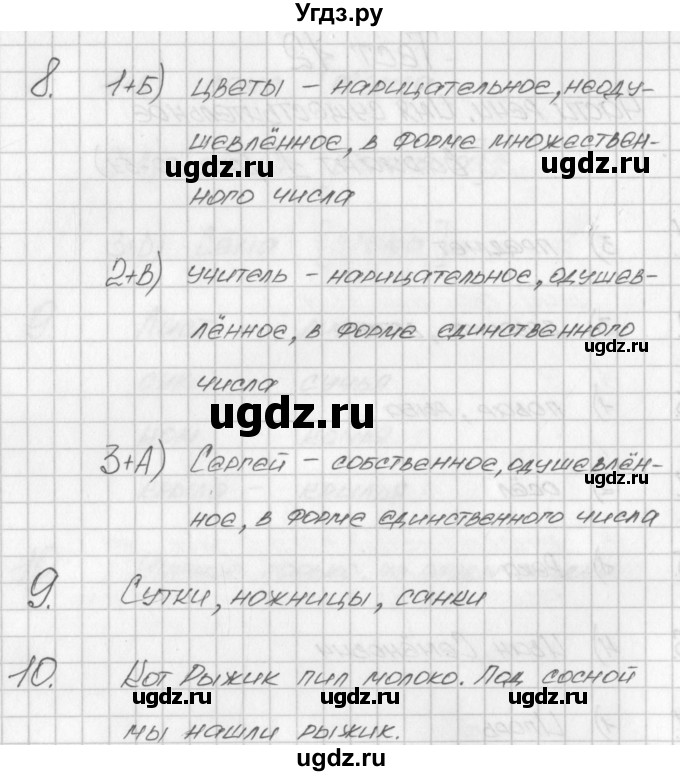 Угдз.ру
8. 1+Б) Цветы – нарицательное, неоду-
шевлённое, в форме множествен-
ugdz.ru ugdz.ru
ного числа
2+В) Учитель – нарицательное, одушев-
лённое, в форме единственного
ugdz.ru
числа
ugdz.ru
3+А) Сергей – собственное, одушевлён-
ugdz.ru
ное, в форме единственного числа
9. Сутки, ножницы, санки
10. Кот Рыжик пил молоко. Под сосной
ugdz.ru ugdz.ru ugdz.ru
мы нашли рыжик.
ugdz.ru